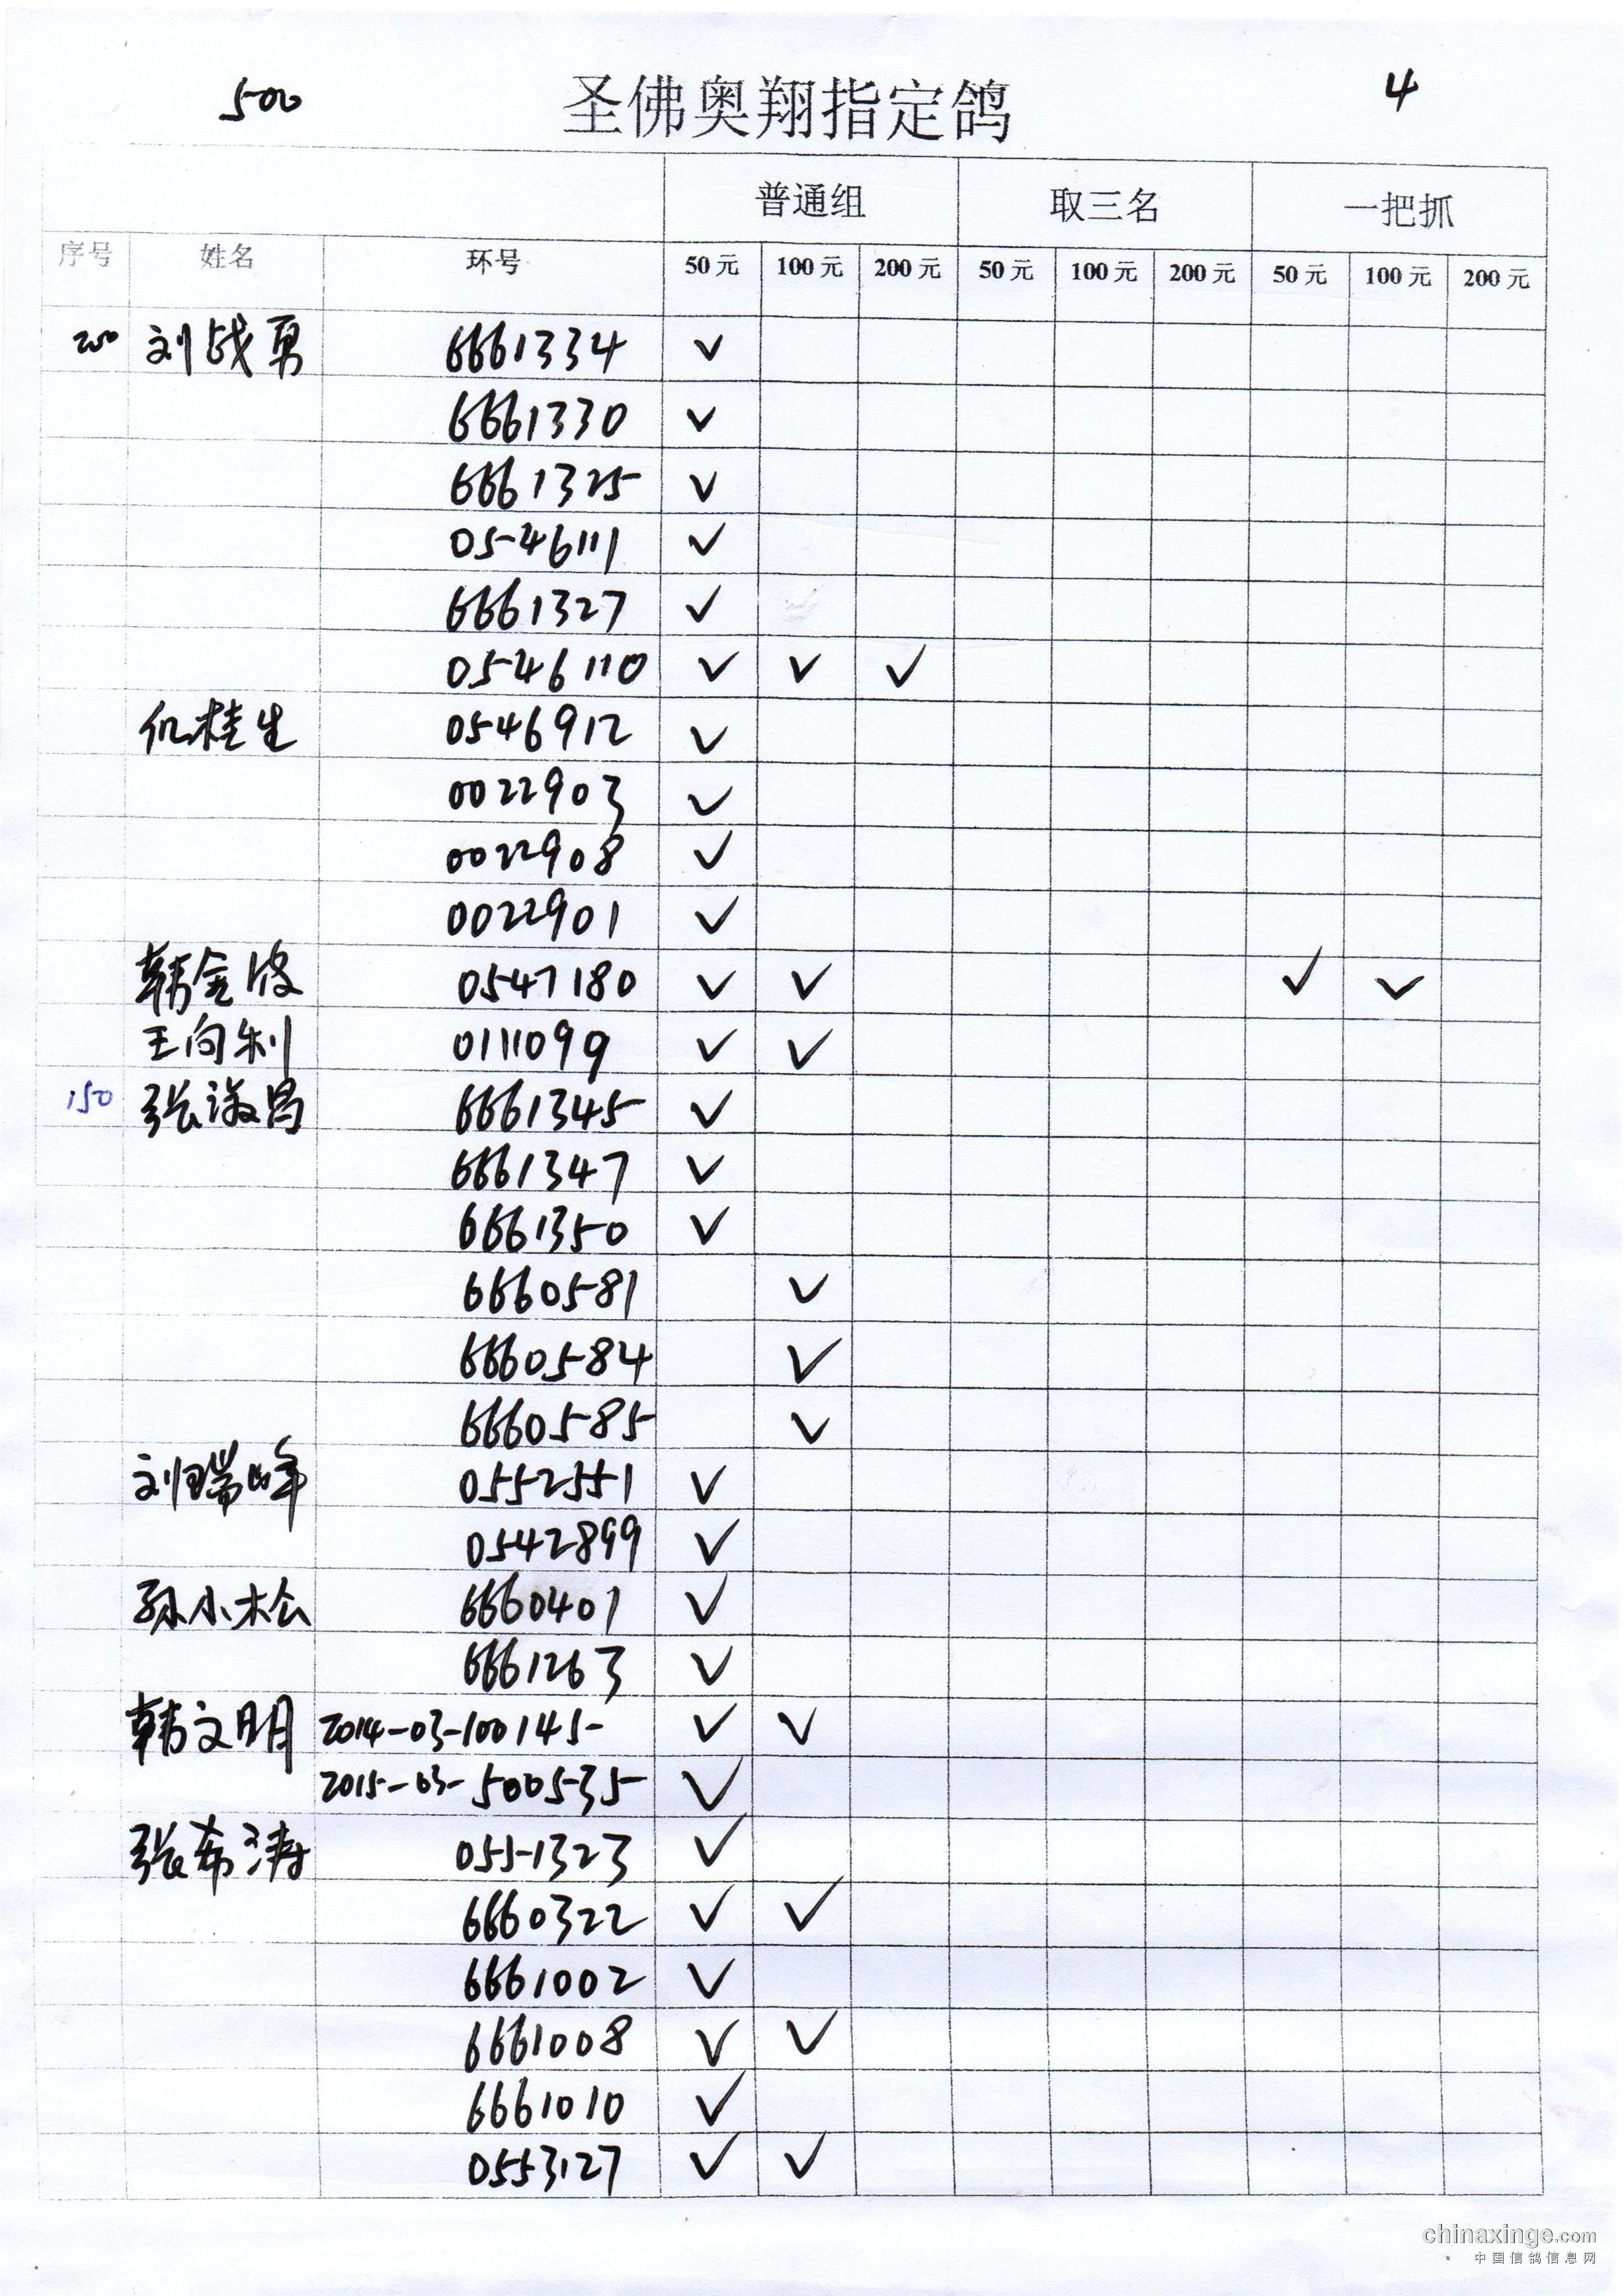 500 圣佛奥翔指定鸽 4
普通组 取三名 一把抓
序号 姓名 环号 50元 100元 200元 50元 100元 200元 50元 100元 200元
200 刘战勇 6661334 ✓
6661330 ✓
6661325 ✓
0546111 ✓
6661327 ✓
0546110 ✓ ✓ ✓
桂生 0546912 ✓
0022903 ✓
0022908 ✓
0022901 ✓
韩金波 0547180 ✓ ✓ ✓ ✓
王向利 0111099 ✓ ✓
150 张淑昌 6661345 ✓
6661347 ✓
6661350 ✓
6660581 ✓
6660584 ✓
6660585 ✓
刘瑞峰 0552551 ✓
0542899 ✓
孙小松 6660401 ✓
6661263 ✓
韩文明 2014-03-100145 ✓ ✓
2015-03-500535 ✓
张希涛 0551323 ✓
6660322 ✓ ✓
6661002 ✓
6661008 ✓ ✓
6661010 ✓
0553127 ✓ ✓
chinaxinge.com
中国信鸽信息网